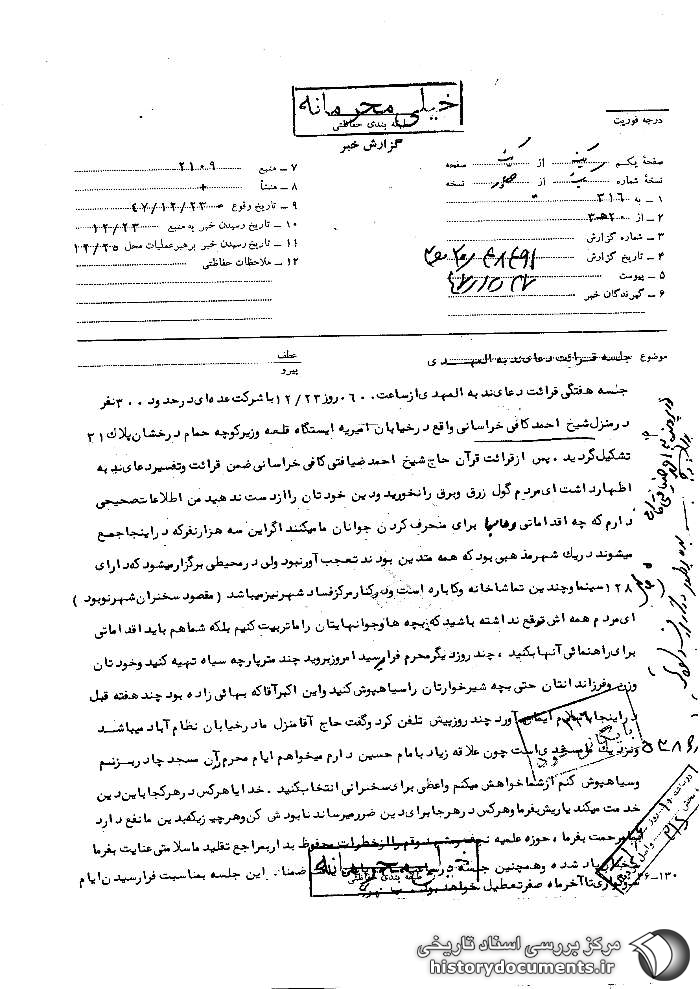 خیلی محرمانه
طبقه بندی حفاظتی
گزارش خبر
درجه فوریت
صفحه یکم از صفحه
نسخه شماره از نسخه
۱ ـ به ۳۱۶
۲ ـ از ۲۰ ه ۳
۳ ـ شماره گزارش
۴ ـ تاریخ گزارش
۵ ـ پیوست
۶ ـ گیرندگان خبر
۷ ـ منبع ۲۱۰۹
۸ ـ منشأ +
۹ ـ تاریخ وقوع ۴۷/۱۲/۲۳
۱۰ ـ تاریخ رسیدن خبر به منبع ۱۲/۲۳
۱۱ ـ تاریخ رسیدن خبر برهبر عملیات محل ۱۲/۲۵
۱۲ ـ ملاحظات حفاظتی
موضوع جلسه قرائت دعای ندبه المهدی
عطف
پیرو
جلسه هفتگی قرائت دعای ندبه المهدی از ساعت ۰۶۰۰ روز ۱۲/۲۳ با شرکت عده ای در حدود ۳۰۰ نفر
در منزل شیخ احمد کافی خراسانی واقع در خیابان امیریه ایستگاه قلعه وزیر کوچه حمام درخشان پلاک ۲۱
تشکیل گردید . پس از قرائت قرآن حاج شیخ احمد ضیافتی کافی خراسانی ضمن قرائت و تفسیر دعای ندبه
اظهار داشت ای مردم گول زرق و برق را نخورید و دین خودتان را از دست ندهید من اطلاعات صحیحی
دارم که چه اقداماتی برای منحرف کردن جوانان ما میکنند اگر این سه هزار نفر که در اینجا جمع
میشوند در یك شهر مذهبی بود که همه متدین بودند تعجب آور نبود ولی در محیطی برگزار میشود که دارای
۱۲۸ سینما و چندین تماشاخانه و کاباره است و در کنار مرکز فساد شهر نیز میباشد ( مقصود سخنران شهر نو بود )
ای مردم همه اش توقع نداشته باشید که بچه ها و جوانهایتان را ما تربیت کنیم بلکه شما هم باید اقداماتی
برای راهنمائی آنها بکنید ، چند روز دیگر محرم فرا رسید امروز بروید چند متر پارچه سیاه تهیه کنید و خودتان
وزن و فرزندانتان حتی بچه شیرخوارتان را سیاهپوش کنید و این اکبر آقا که بهائی زاده بود چند هفته قبل
در اینجا ایمان آورد چند روز پیش تلفن کرد و گفت حاج آقا منزل ما در خیابان نظام آباد میباشد
ونزدیك ما مسجدی است چون علاقه زیاد با مام حسین دارم میخواهم ایام محرم آن مسجد چادر بزنم
وسیاهپوش کنم از شما خواهش میکنم واعظی برای سخنرانی انتخاب بکنید . خدایا هر کس در هر کجا باین دین
خدمت میکند یاریش بفرما و هر کس در هر جا برای دین ضرر میرساند نابودش کن و هر چیزیکه بدین ما نفع دارد
مرحمت بفرما ، حوزه علمیه نجف و قم را از خطرات محفوظ بدار بمراجع تقلید ما سلامتی عنایت بفرما
یاد شده و همچنین جلسه ضمنا" این جلسه بمناسبت فرا رسیدن ایام
سوگواری تا آخر ماه صفر تعطیل خواهد بود
بایگانی شود
۲۶-۱۳۰
خیلی محرمانه
طبقه بندی حفاظتی
مرکز بررسی اسناد تاریخی
historydocuments.ir